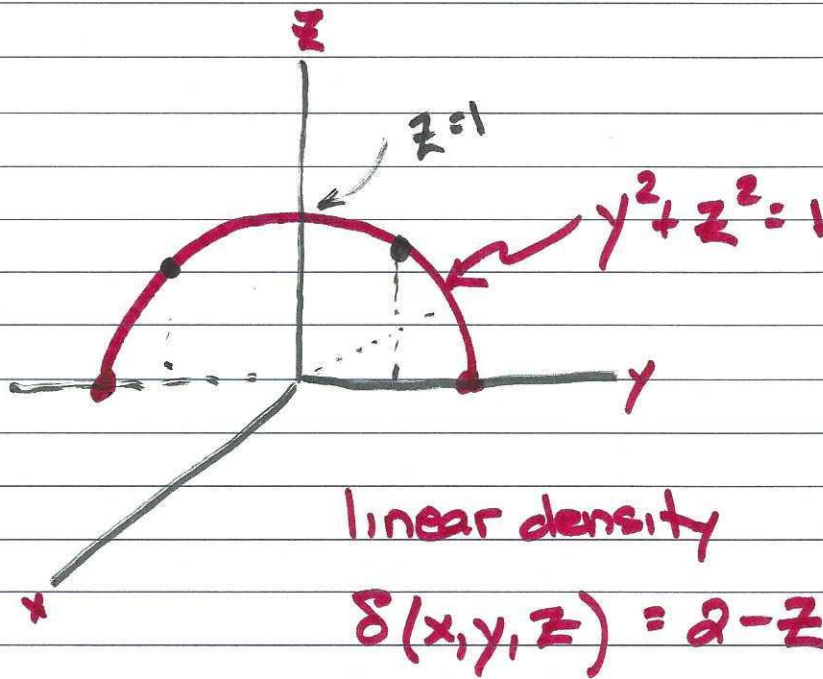 z
z=1
y²+z²=1
y
x
linear density
δ(x,y,z) = 2-z